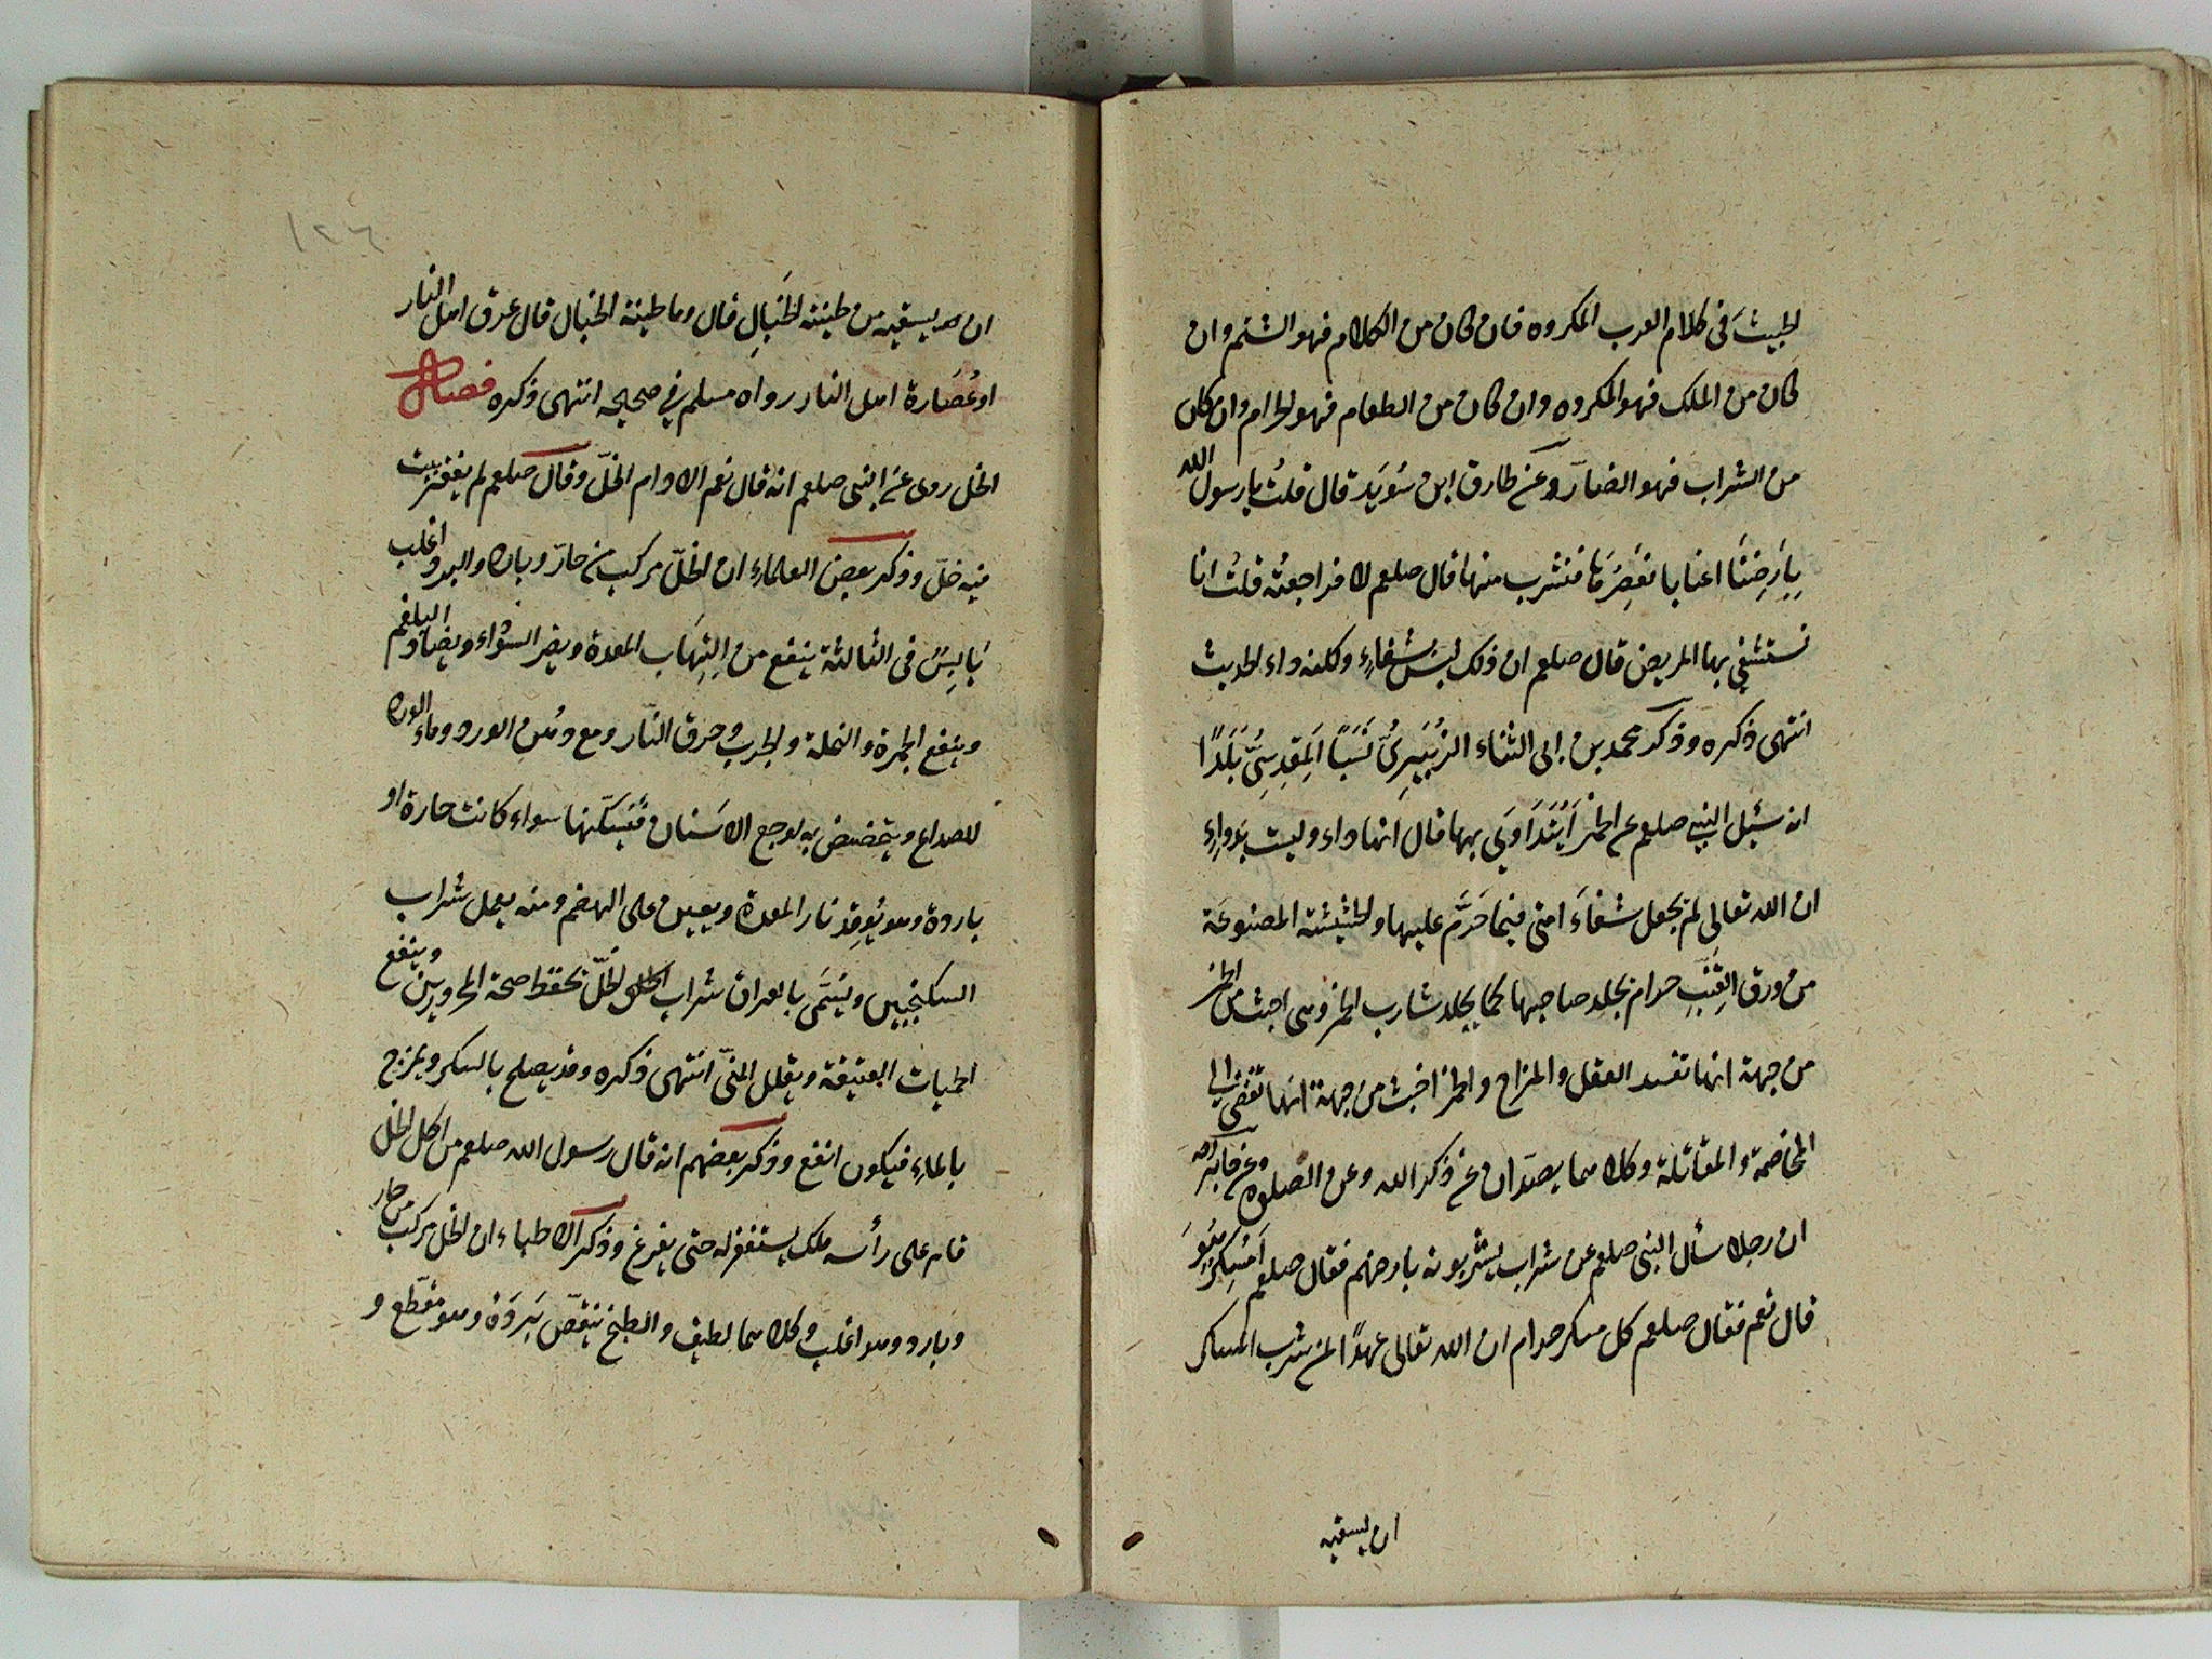 الخبيثَ فى كلام العرب المكروه فان كان من الكلام فهو الشتم وان
كان من الملك فهو المكروه وان كان من الطعام فهو الحرام وان كان
من الشراب فهو الضارّ وعن طارق ابن سُوَيد قال قلتُ يا رسول الله
بِاَرضِنَا اعنابا نعصِرُها فنشرب منها قال صلعم لا فراجعتُه قلتُ انا
نستشفى بها المريض قال صلعم ان ذلك ليس بشفاءٍ ولكنه داء الحديث
انتهى ذكره وذكر محمد بن ابى الثناء الزُبَيرىُّ نَسَبًا المقدِسِىُّ بَلَدًا
انه سُئِل النبى صلعم عن الخمر اَيُتَدَاوَى بها قال انها داء وليست بدواءٍ
ان الله تعالى لم يجعل شفاءَ امتى فيما حَرَّم عليها والحشيشة المصنوعَة
من ورق القِنَّبِ حرام يجلد صاحبها كما يجلد شارب الخمر وهى اخبث من الخمر
من جهة انها تفسد العقل والمزاج والخمر اخبث من جهة انها تفضى الى
المخاصمة والمقاتلة وكلاهما يصدّان عن ذكر الله وعن الصلوة وعن جابر
ان رجلا سأل النبى صلعم عن شراب يشربونه بارضهم فقال صلعم اَمُسكِرٌ هُوَ
قال نعم فقال صلعم كل مسكر حرام ان الله تعالى عهدًا لمن شرب المسكر
ان يسقيه
١٢٦
ان يسقيه من طينة الخَبَالِ قال وما طينة الخبال قال عرق اهل النار
او عُصَارة اهل النار رواه مسلم فى صحيحه انتهى ذكره فصل
الخل روى عن النبى صلعم انه قال نعم الادام الخلّ وقال صلعم لم يفقر بيت
فيه خلّ وذكر بعض العلماء ان الخلّ مركب من حارّ وبارد والبرد اغلب
يَابِسٌ فى الثالثة ينفع من اِلتِهَاب المعدة ويضر السَّوداء ويضادّ البلغم
وينفع الجمرة والنملة والجرب وحرق النّار ومع دُهنِ الورد وماء الورد
للصداع ويتمضمض به لوجع الاَسنان فَيُسَكّنها سواء كانت حارة او
باردة وهو يُوقِد نار المعدة ويعين على الهضم ومنه يعمل شراب
السكنجبين ويُسَمَّى بالعراق شراب الخلّ تحفظ صحة المحرورين وينفع
الحميات العتيقة ويقلل المنىّ انتهى ذكره وقد يصلح بالسكر ويمزج
بالماءِ فيكون انفع وذكر بعضهم انه قال رسول الله صلعم من اكل الخل
قام على رأسه ملك يستغفر له حتى يفرغ وذكر الاطباء ان الخل مركب من حار
وبارد وهو اغلب وكلاهما لطيف والطبخ ينقصّ بَردَه وهو مقطّع و